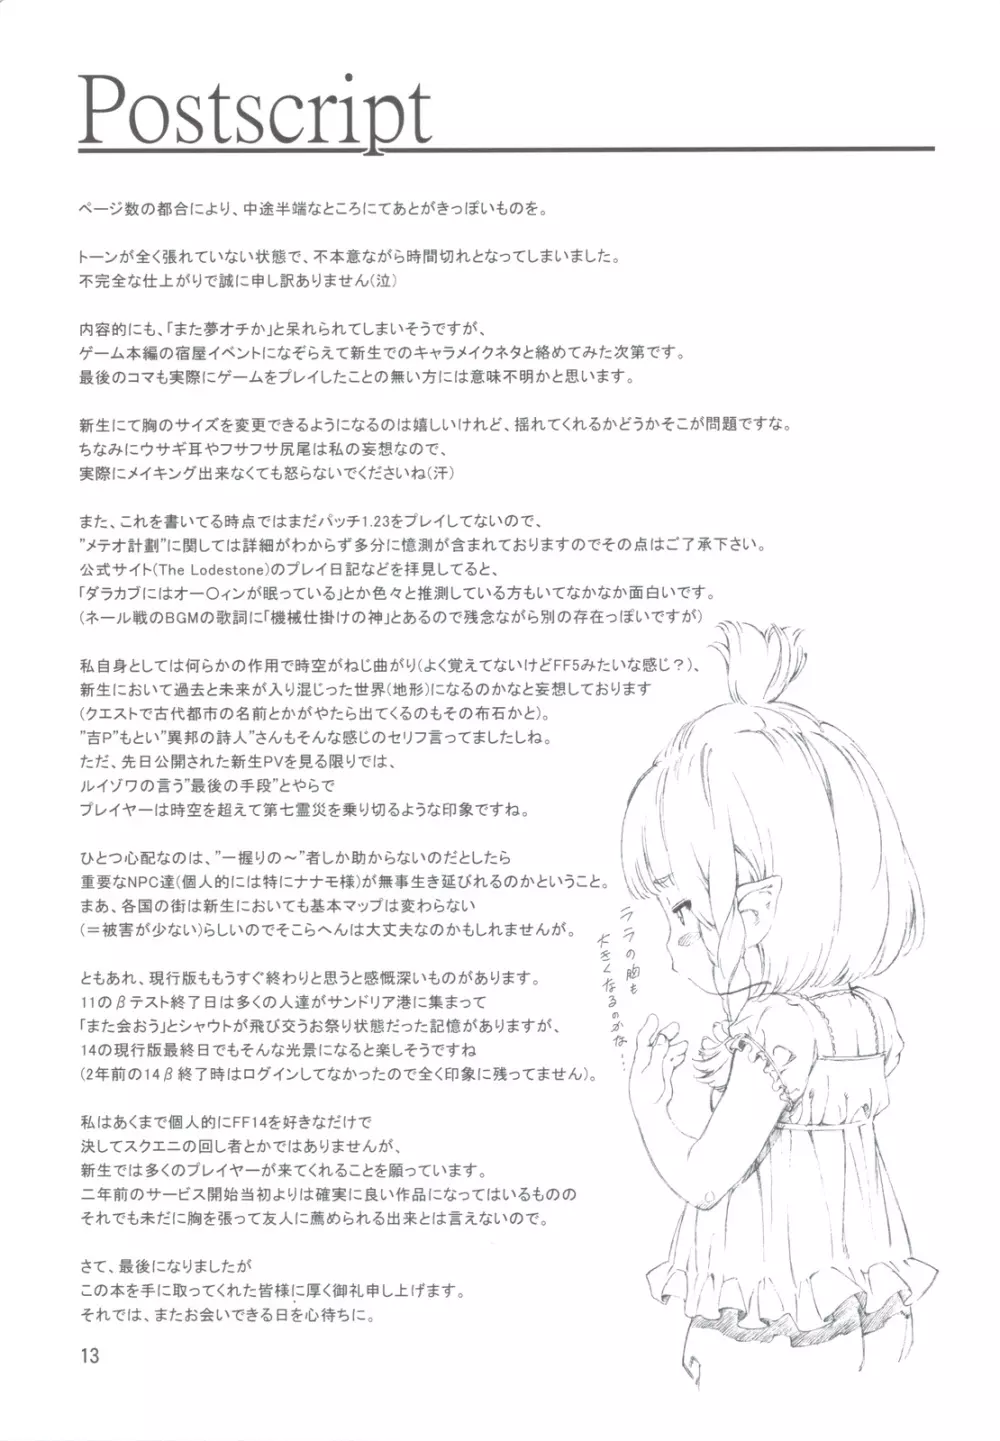 Postscript
ページ数の都合により、中途半端なところにてあとがきっぽいものを。
トーンが全く張れていない状態で、不本意ながら時間切れとなってしまいました。
不完全な仕上がりで誠に申し訳ありません(泣)
内容的にも、｢また夢オチか｣と呆れられてしまいそうですが、
ゲーム本編の宿屋イベントになぞらえて新生でのキャラメイクネタと絡めてみた次第です。
最後のコマも実際にゲームをプレイしたことの無い方には意味不明かと思います。
新生にて胸のサイズを変更できるようになるのは嬉しいけれど、揺れてくれるかどうかそこが問題ですな。
ちなみにウサギ耳やフサフサ尻尾は私の妄想なので、
実際にメイキング出来なくても怒らないでくださいね(汗)
また、これを書いてる時点ではまだパッチ1.23をプレイしてないので、
”メテオ計劃”に関しては詳細がわからず多分に憶測が含まれておりますのでその点はご了承下さい。
公式サイト(The Lodestone)のプレイ日記などを拝見してると、
｢ダラガブにはオー○ィンが眠っている｣とか色々と推測している方もいてなかなか面白いです。
(ネール戦のBGMの歌詞に｢機械仕掛けの神｣とあるので残念ながら別の存在っぽいですが)
私自身としては何らかの作用で時空がねじ曲がり(よく覚えてないけどFF5みたいな感じ？)、
新生において過去と未来が入り混じった世界(地形)になるのかなと妄想しております
(クエストで古代都市の名前とかがやたら出てくるのもその布石かと)。
”吉P”もとい”異邦の詩人”さんもそんな感じのセリフ言ってましたしね。
ただ、先日公開された新生PVを見る限りでは、
ルイゾワの言う”最後の手段”とやらで
プレイヤーは時空を超えて第七霊災を乗り切るような印象ですね。
ひとつ心配なのは、”一握りの～”者しか助からないのだとしたら
重要なNPC達(個人的には特にナナモ様)が無事生き延びれるのかということ。
まあ、各国の街は新生においても基本マップは変わらない
(＝被害が少ない)らしいのでそこらへんは大丈夫なのかもしれませんが。
ともあれ、現行版ももうすぐ終わりと思うと感慨深いものがあります。
11のβテスト終了日は多くの人達がサンドリア港に集まって
｢また会おう｣とシャウトが飛び交うお祭り状態だった記憶がありますが、
14の現行版最終日でもそんな光景になると楽しそうですね
(2年前の14β終了時はログインしてなかったので全く印象に残ってません)。
私はあくまで個人的にFF14を好きなだけで
決してスクエニの回し者とかではありませんが、
新生では多くのプレイヤーが来てくれることを願っています。
二年前のサービス開始当初よりは確実に良い作品になってはいるものの
それでも未だに胸を張って友人に薦められる出来とは言えないので。
さて、最後になりましたが
この本を手に取ってくれた皆様に厚く御礼申し上げます。
それでは、またお会いできる日を心待ちに。
ララの胸も
大きくなるのかな…
13